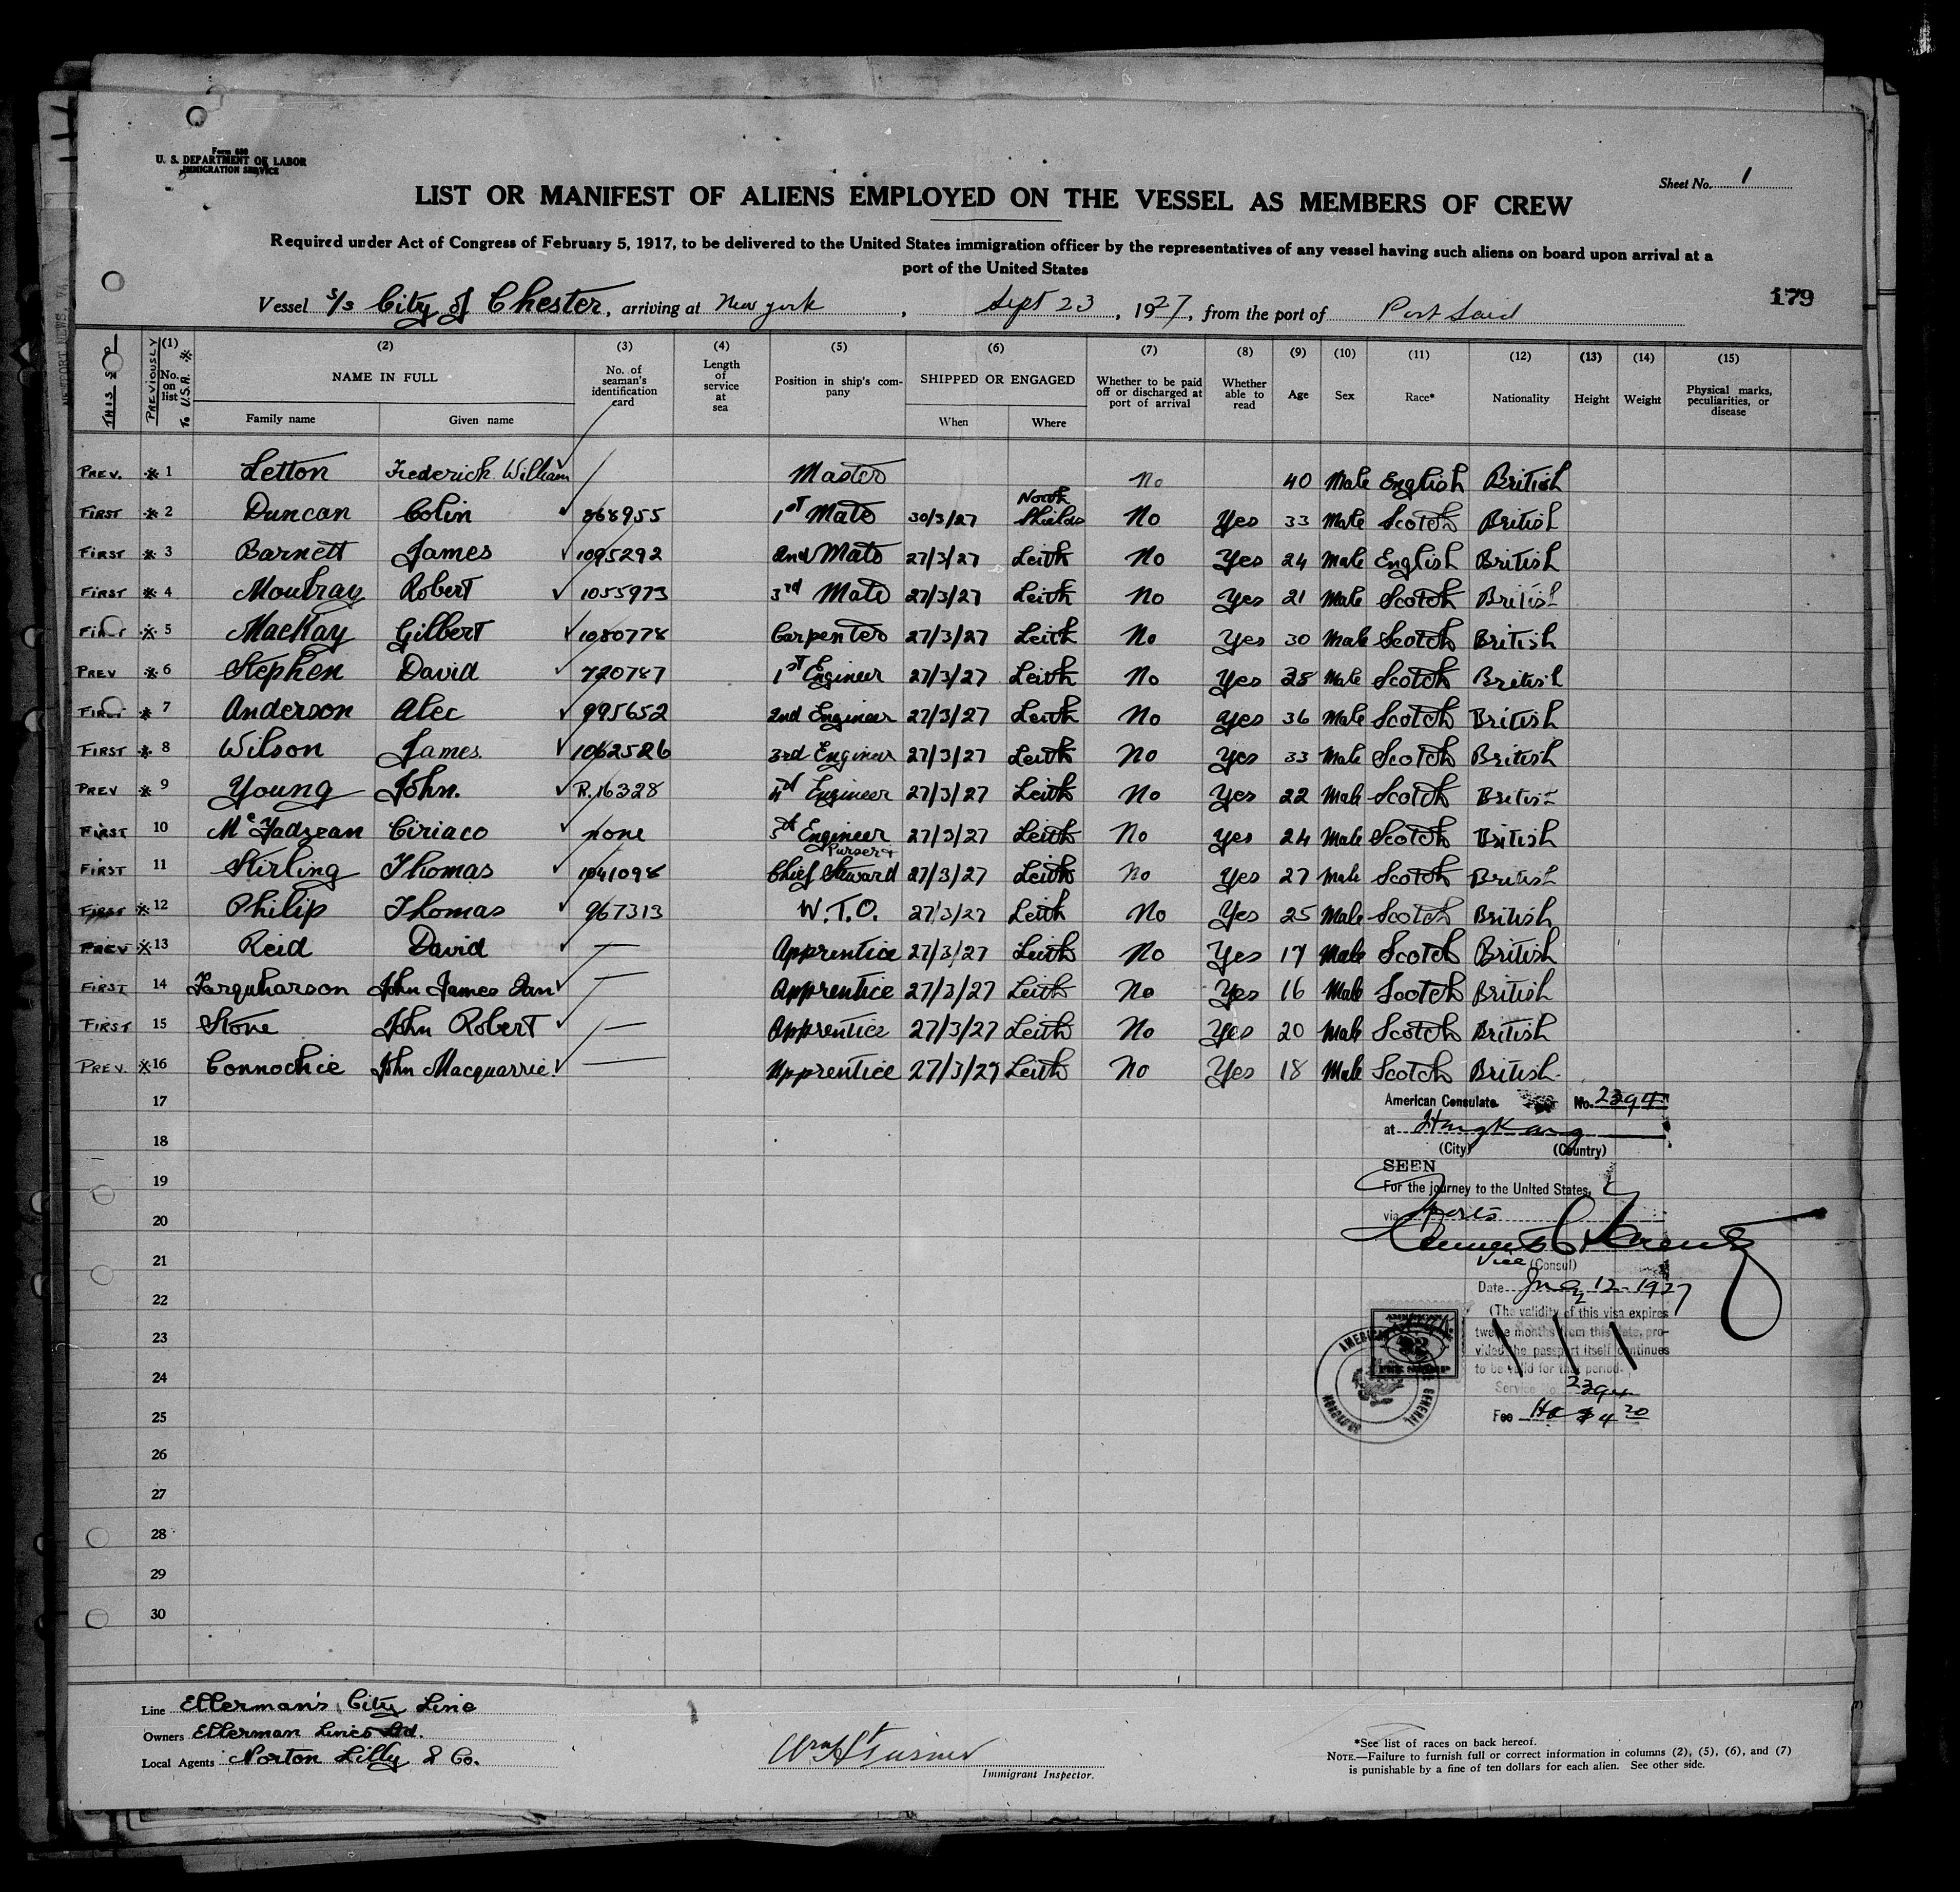 Form 680
U. S. DEPARTMENT OF LABOR
IMMIGRATION SERVICE
Sheet No. 1
LIST OR MANIFEST OF ALIENS EMPLOYED ON THE VESSEL AS MEMBERS OF CREW
Required under Act of Congress of February 5, 1917, to be delivered to the United States immigration officer by the representatives of any vessel having such aliens on board upon arrival at a
port of the United States
179
Vessel S/S City of Chester, arriving at New York, Sept 23, 1927, from the port of Port Said
THIS PREVIOUSLY TO U.S.A. * (1) No. on list (2) NAME IN FULL Family name Given name (3) No. of seaman's identification card (4) Length of service at sea (5) Position in ship's company (6) SHIPPED OR ENGAGED When Where (7) Whether to be paid off or discharged at port of arrival (8) Whether able to read (9) Age (10) Sex (11) Race* (12) Nationality (13) Height (14) Weight (15) Physical marks, peculiarities, or disease
PREV. * 1 Letton Frederick William Master No 40 Male English British
FIRST * 2 Duncan Colin 868955 1st Mate 30/3/27 North Shields No Yes 33 Male Scotch British
FIRST * 3 Barnett James 1095292 2nd Mate 27/3/27 Leith No Yes 24 Male English British
FIRST * 4 Moubray Robert 1055973 3rd Mate 27/3/27 Leith No Yes 21 Male Scotch British
FIRST * 5 MacKay Gilbert 1080778 Carpenter 27/3/27 Leith No Yes 30 Male Scotch British
PREV * 6 Stephen David 720787 1st Engineer 27/3/27 Leith No Yes 38 Male Scotch British
FIRST * 7 Anderson Alec 995652 2nd Engineer 27/3/27 Leith No Yes 36 Male Scotch British
FIRST * 8 Wilson James. 1062526 3rd Engineer 27/3/27 Leith No Yes 33 Male Scotch British
PREV * 9 Young John. R.16328 4th Engineer 27/3/27 Leith No Yes 22 Male Scotch British
FIRST 10 McFadzean Ciriaco none 5th Engineer 27/3/27 Leith No Yes 24 Male Scotch British
FIRST 11 Stirling Thomas 1041098 Purser & Chief Steward 27/3/27 Leith No Yes 27 Male Scotch British
FIRST * 12 Philip Thomas 967313 W.T.O. 27/3/27 Leith No Yes 25 Male Scotch British
PREV * 13 Reid David — Apprentice 27/3/27 Leith No Yes 17 Male Scotch British
FIRST 14 Farquharson John James Ian — Apprentice 27/3/27 Leith No Yes 16 Male Scotch British
FIRST 15 Stove John Robert — Apprentice 27/3/27 Leith No Yes 20 Male Scotch British
PREV. * 16 Connochie John Macquarrie. — Apprentice 27/3/27 Leith No Yes 18 Male Scotch British.
17
18
19
20
21
22
23
24
25
26
27
28
29
30
American Consulate No. 2394
at HongKong
(City) (Country)
SEEN
For the journey to the United States,
via
Vice (Consul)
Date 12 1927
(The validity of this visa expires
twelve months from this date, pro-
vided the passport itself continues
to be valid for this period.
Service No. 2394
Fee HK $4.20
AMERICAN
FEE STAMP
AMERICAN GENERAL HONGKONG
Line Ellerman's City Line
Owners Ellerman Lines Ltd.
Local Agents Norton Lilly & Co.
Turner
Immigrant Inspector.
*See list of races on back hereof.
NOTE.—Failure to furnish full or correct information in columns (2), (5), (6), and (7)
is punishable by a fine of ten dollars for each alien. See other side.